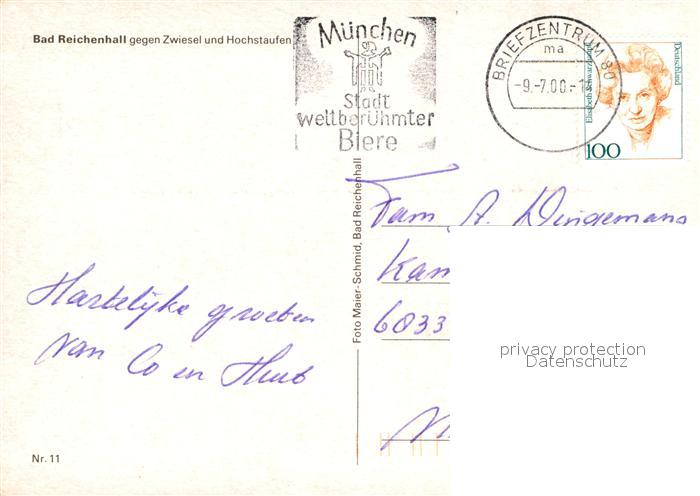 Bad Reichenhall gegen Zwiesel und Hochstaufen
München
Stadt
weltberühmter
Biere
BRIEFZENTRUM 80
ma
-9.-7.00.-1
Elisabeth Schwarz
Deutschland
100
Foto Maier-Schmid, Bad Reichenhall
Fam. A. Dingemans
Kan
6033
Hartelijke groeten
van Co en Huub
privacy protection
Datenschutz
Nr. 11